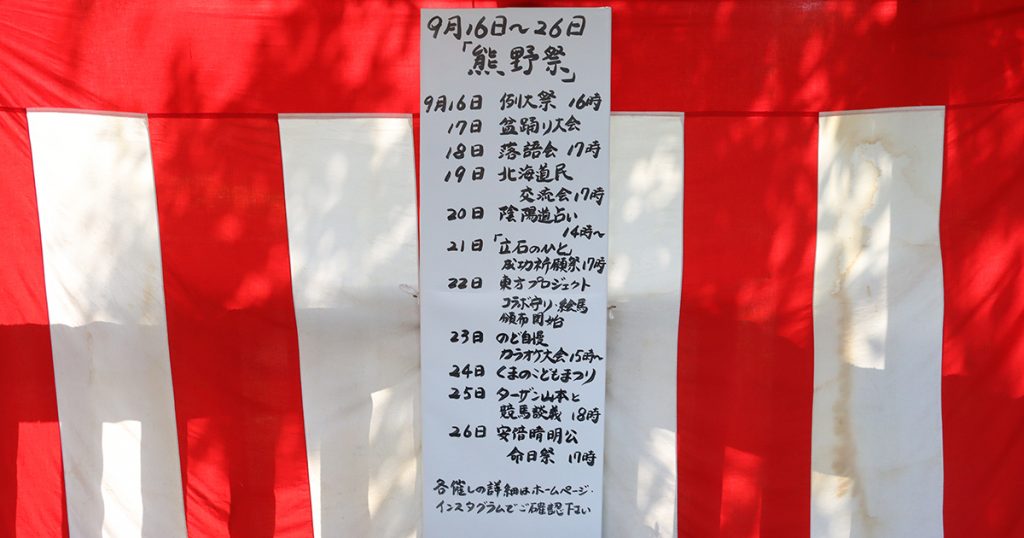 9月16日〜26日
「熊野祭」
9月16日 例大祭 16時
17日 盆踊り大会
18日 落語会 17時
19日 北海道民
交流会17時
20日 陰陽道占い
14時〜
21日 「立石のひと」
成功祈願祭17時
22日 東方プロジェクト
コラボ守り・絵馬
頒布開始
23日 のど自慢
カラオケ大会15時〜
24日 くまのこどもまつり
25日 ターザン山本と
競馬談義 18時
26日 安倍晴明公
命日祭 17時
各催しの詳細はホームページ・
インスタグラムでご確認下さい